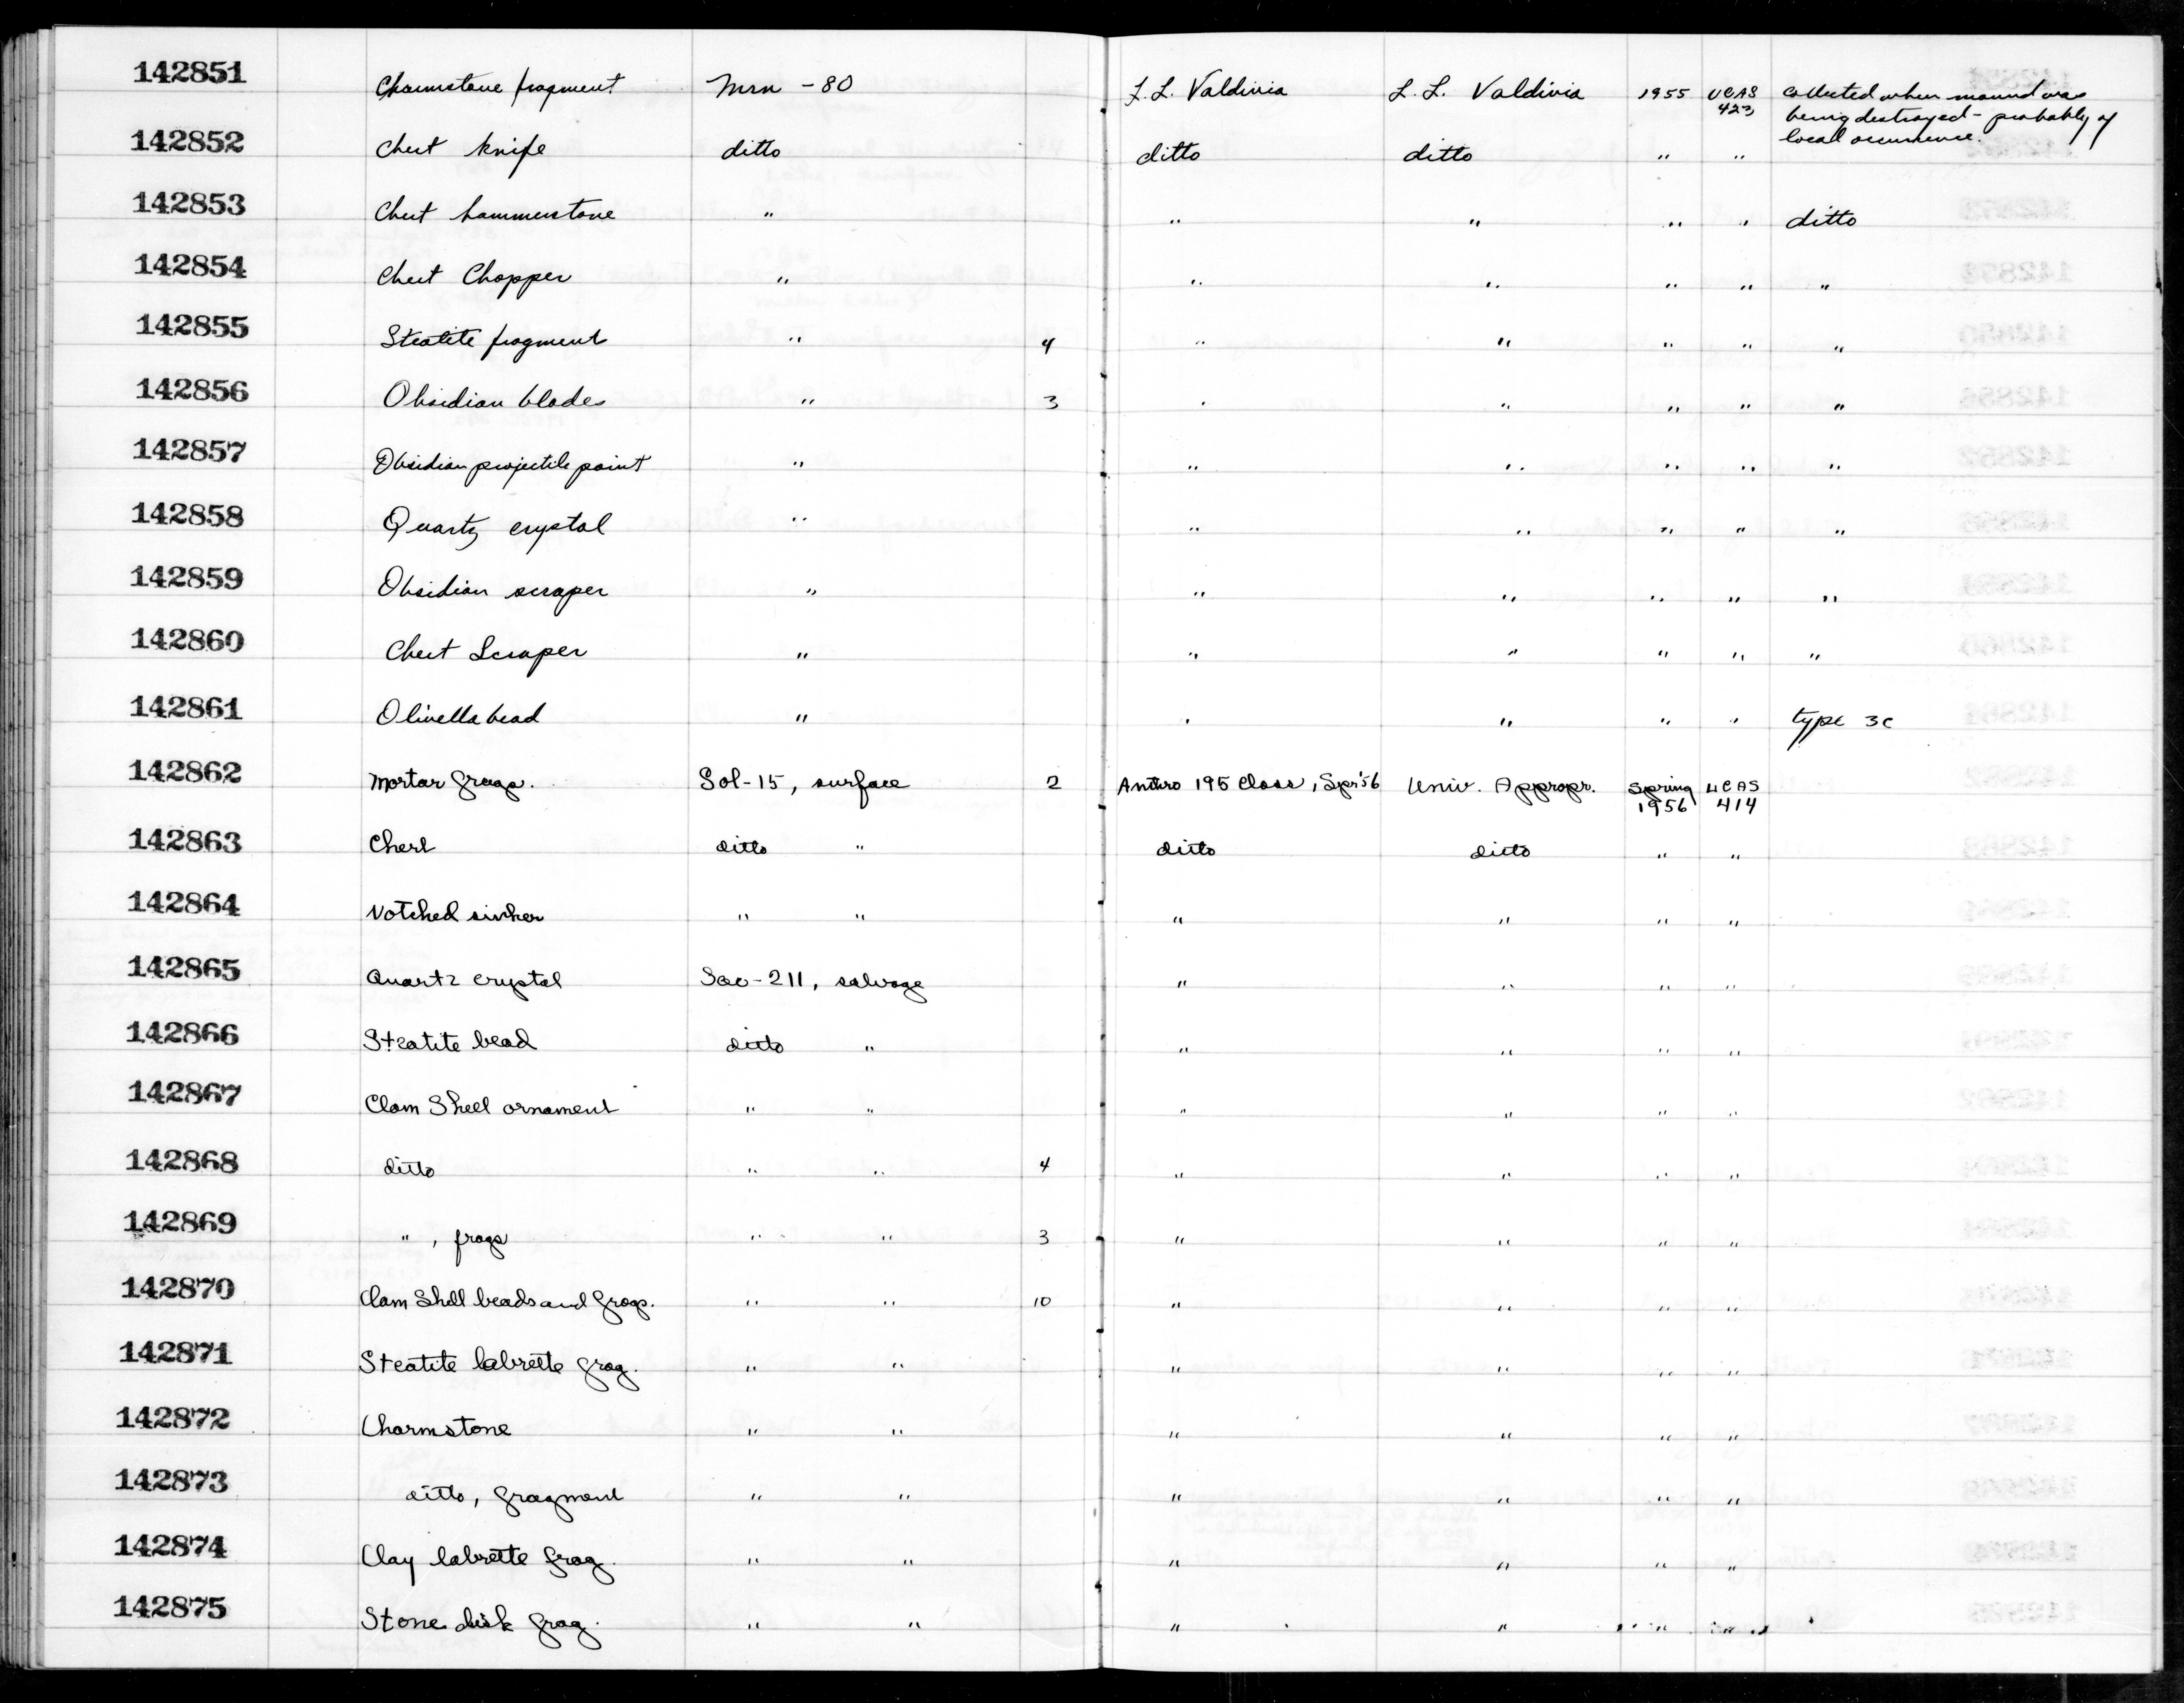 142851 Charmstone fragment Mrn - 80 L.L. Valdivia L. L. Valdivia 1955 UCAS 423 Collected when mound was
being destroyed - probably of
local occurrence.
142852 Chert knife ditto ditto ditto " "
142853 Chert hammerstone " " " " " ditto
142854 Chert Chopper " " " " " "
142855 Steatite fragment " 4 " " " " "
142856 Obsidian blades " 3 " " " " "
142857 Obsidian projectile point " " " " " "
142858 Quartz crystal " " " " " "
142859 Obsidian scraper " " " " " "
142860 Chert Scraper " " " " " "
142861 Olivella bead " " " " " type 3c
142862 Mortar frags. Sol-15, surface 2 Anthro 195 Class, Spr'56 Univ. Appropr. Spring 1956 UCAS 414
142863 Chert ditto " ditto ditto " "
142864 Notched sinker " " " " " "
142865 Quartz crystal Sac-211, salvage " " " "
142866 Steatite bead ditto " " " " "
142867 Clam Shell ornament " " " " " "
142868 ditto " " 4 " " " "
142869 " , frags " " 3 " " " "
142870 Clam Shell beads and frags. " " 10 " " " "
142871 Steatite labrette frag. " " " " " "
142872 Charmstone " " " " " "
142873 ditto, fragment " " " " " "
142874 Clay labrette frag. " " " " " "
142875 Stone disk frag. " " " " " "